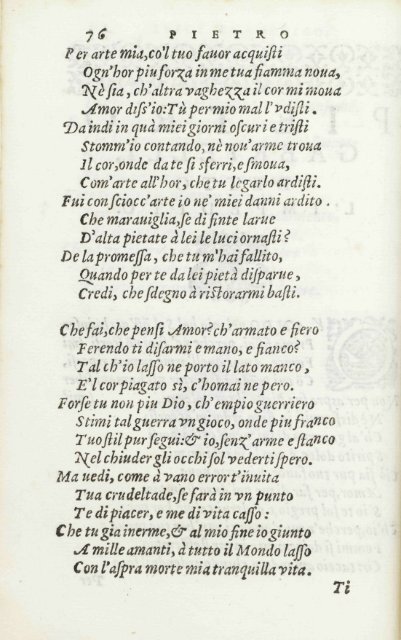 76 PIETRO
Per arte mia, co'l tuo fauor acquisti
Ogn'hor piu forza in me tua fiamma noua,
Nè sia, ch'altra vaghezza il cor mi moua
Amor diss'io: Tù per mio mal l'vdisti.
Da indi in quà miei giorni oscuri e tristi
Stomm'io contando, nè nou'arme troua
Il cor, onde da te si sferri, e smoua,
Com'arte all'hor, che tu legarlo ardisti.
Fui con sciocc'arte io ne' miei danni ardito.
Che marauiglia, se di finte larue
D'alta pietate à lei le luci ornasti?
De la promessa, che tu m'hai fallito,
Quando per te da lei pietà disparue,
Credi, che sdegno à ristorarmi basti.
Che fai, che pensi Amor? ch'armato e fiero
Ferendo ti disarmi e mano, e fianco?
Tal ch'io lasso ne porto il lato manco,
E'l cor piagato sì, c'homai ne pero.
Forse tu non piu Dio, ch'empio guerriero
Stimi tal guerra vn gioco, onde piu franco
Tuo stil pur segui: & io, senz'arme e stanco
Nel chiuder gli occhi sol vederti spero.
Ma vedi, come à vano error t'inuita
Tua crudeltade, se farà in vn punto
Te di piacer, e me di vita casso:
Che tu gia inerme, & al mio fine io giunto
A mille amanti, à tutto il Mondo lasso
Con l'aspra morte mia tranquilla vita.
Ti